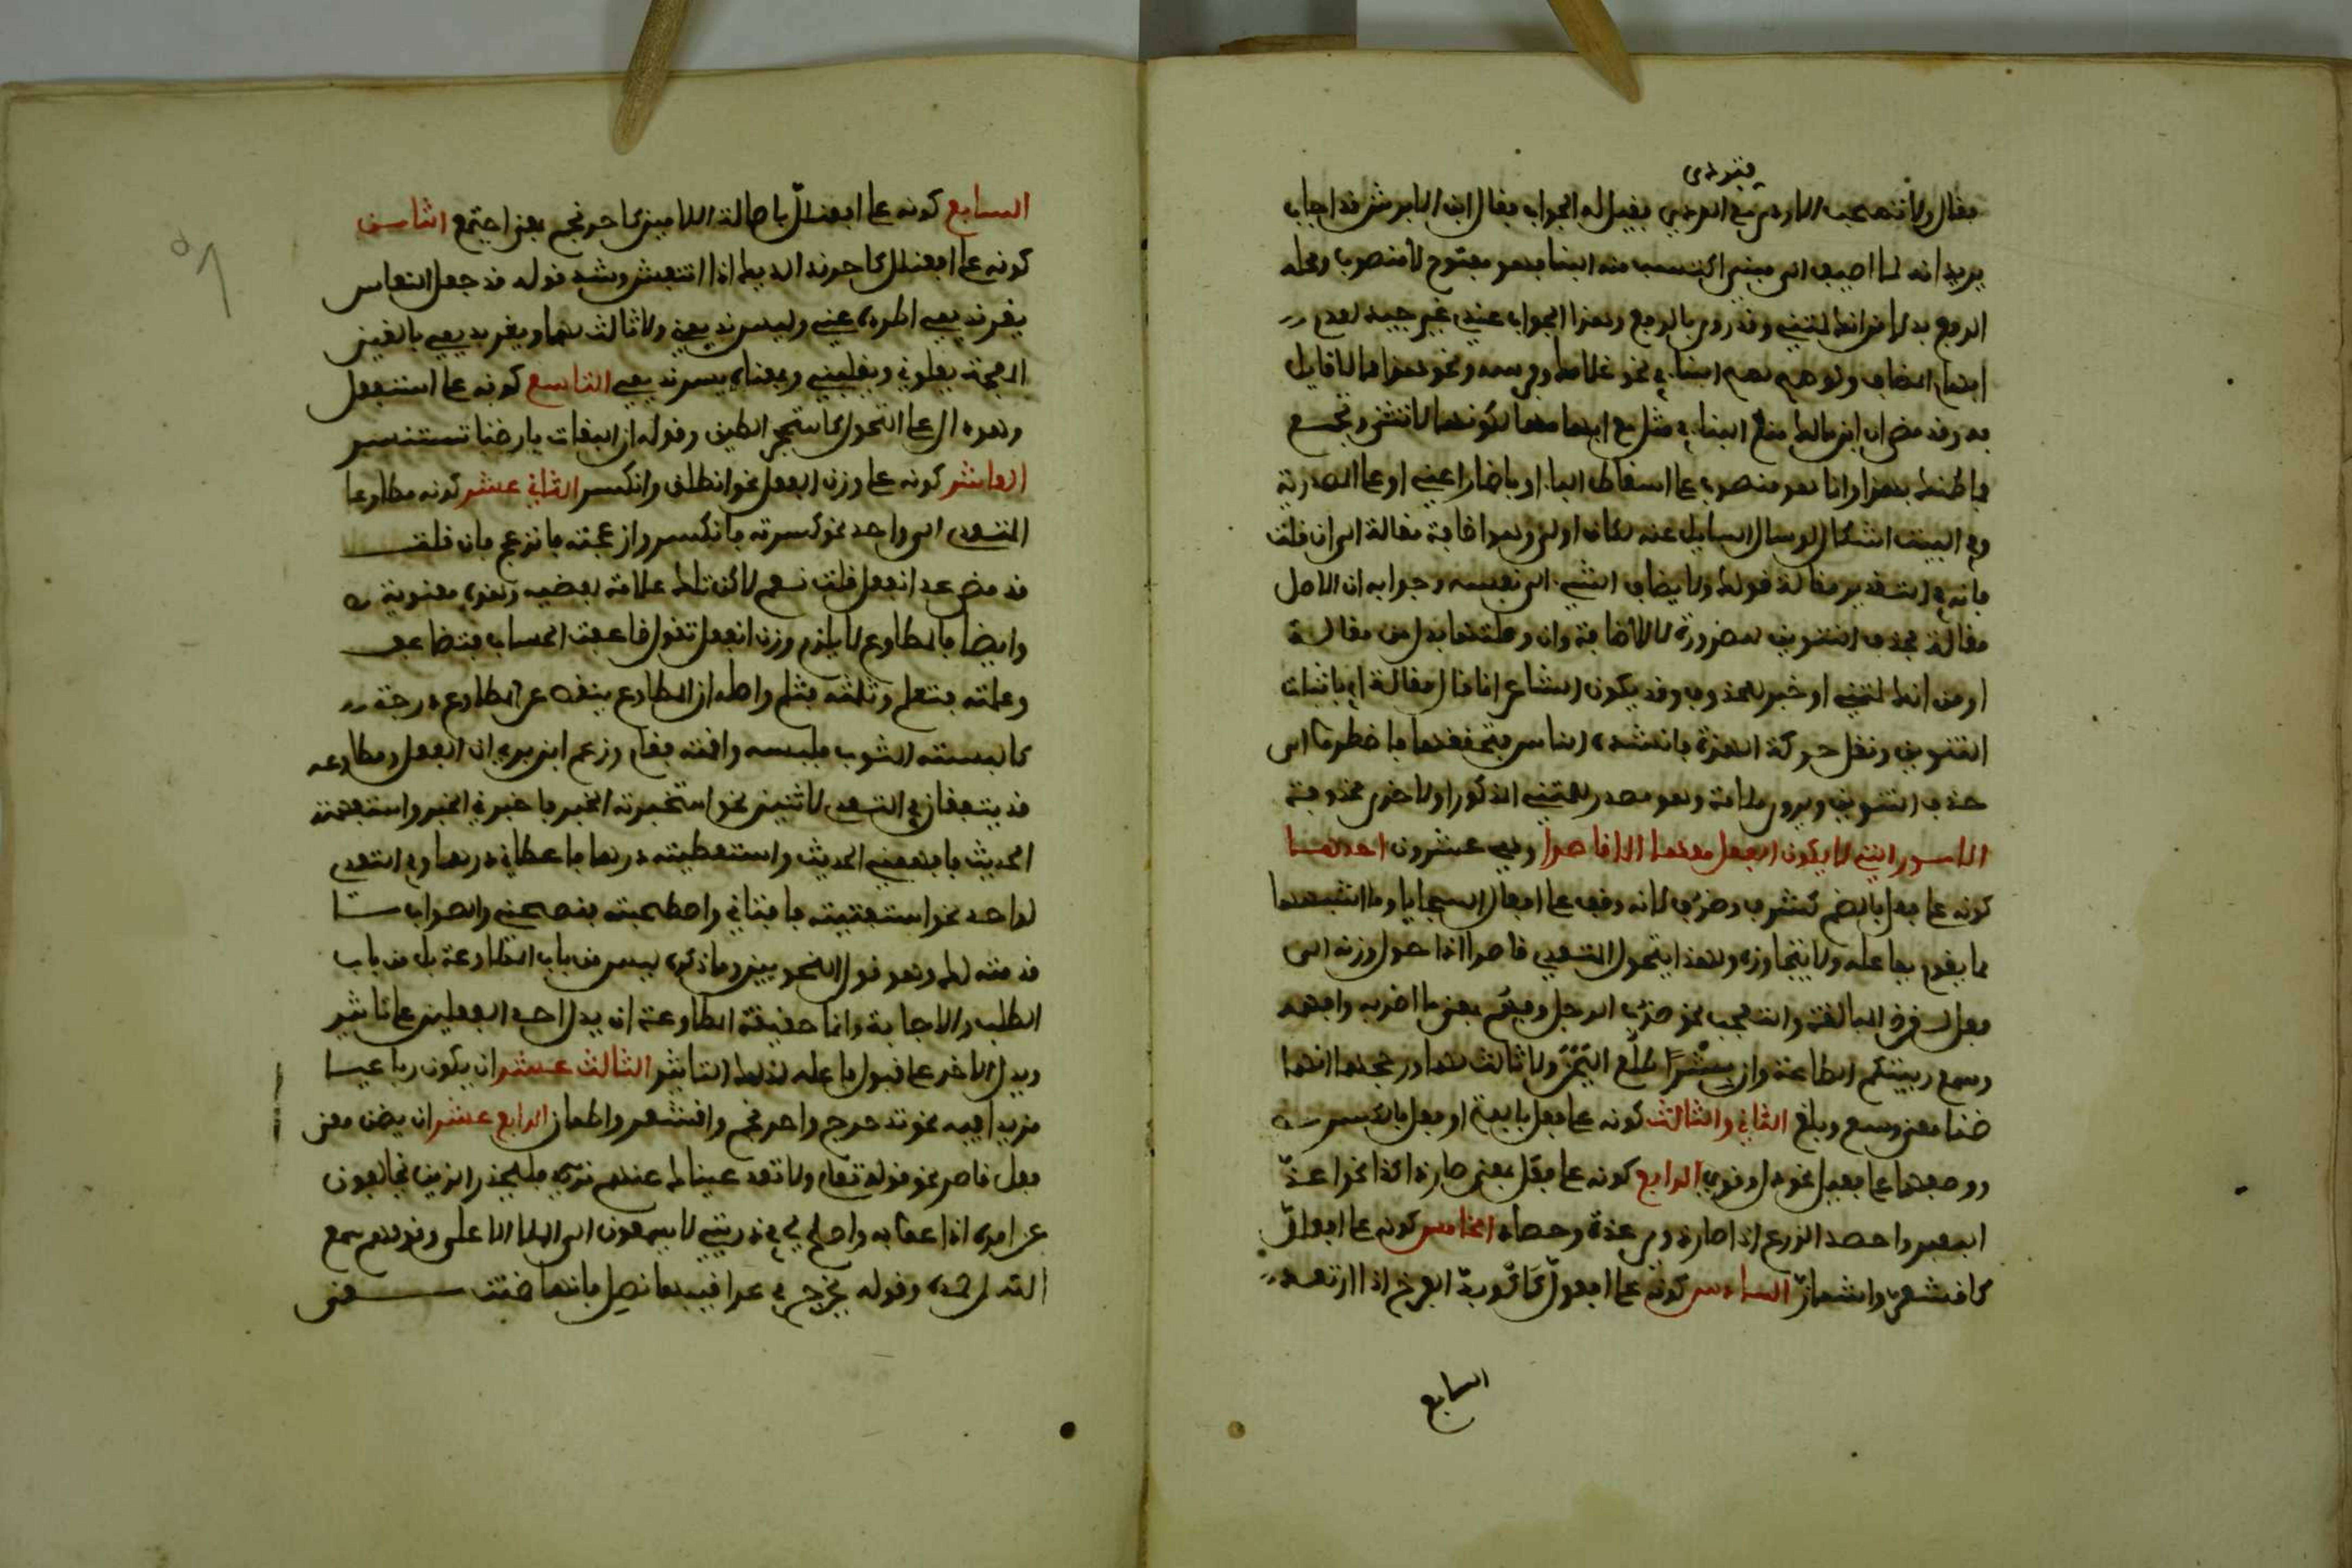 فقال ولا تصحب الاردى مع الردي فقيل له الجواب فقال ابن الابرش قد اجاب
فتردى
يريد انه لما اضيف الى مبني اكتسب منه البنا فهو مفتوح لا منصوب ومحله
الرفع بدلا من انك لمتني وقد روي بالرفع وهذا الجواب عندي غير جيد لعدم
ابهام المضاف ولو صح لصح البنا في نحو غلامك وفرسه ونحو هذا مما لا قايل
به وقد مضى ان ابن مالك منع البنا في مثل مع ابهامها لكونها تثنى وتجمع
فما ظنك بهذا وانما هو منصوب على اسقاط البا او باضمار اعني او على المصدرية
وفي البيت اشكال لو سال السايل عنه لكان اولى وهو اضافة مقالة الى ان قلت
فانه في التقدير مقالة قولك ولا يضاف الشي الى نفسه وجوابه ان الاصل
مقالة فحذف التنوين للضرورة لا للاضافة وان وصلتها بدل من مقالة
او من انك لمتني او خبر لمحذوف وقد يكون الشاعر انما قال مقالة ان باثبات
التنوين ونقل حركة الهمزة فانشده الناس بتحقيقها فاضطروا الى
حذف التنوين ويروى ملامة وهو مصدر للمتني المذكورة او لاخرى محذوفة
الامور التي لا يكون الفعل معها الا قاصرا وهي عشرون احدها
كونه على فعل بالضم كشرف وظرف لانه وقف على افعال السجايا وما اشبهها
مما يقوم بفاعله ولا يتجاوزه ولهذا يتحول المتعدي قاصرا اذا حول وزنه الى
فعل لغرض المبالغة والتعجب نحو ضرب الرجل وفهم بمعنى ما اضربه وافهمه
وسمع رحبتكم الطاعة وان بشرا طلع اليمن ولا ثالث لهما ووجههما انهما
ضمنا معنى وسع وبلغ الثاني والثالث كونه على فعل بالفتح او فعل بالكسر
ووصفهما على فعيل نحو ذل وقوي الرابع كونه على افعل بمعنى صار ذا كذا نحو اغد
البعير واحصد الزرع اذا صارا ذوي غدة وحصاد الخامس كونه على افعلل
كاقشعر واشماز السادس كونه على افوعل كاكوهد الفرخ اذا ارتعد
السابع
السابع كونه على افعنلل باصالة اللامين كاحرنجم بمعنى اجتمع الثامن
كونه على افعنلل كاحرنبى الديك اذا انتفش وشذ قوله قد جعل النعاس
يغرنديني اطرده عني ويسرنديني ولا ثالث لهما ويغرنديني بالغين
المعجمة يعلوني ويغلبني وبمعناه يسرنديني التاسع كونه على استفعل
وهو دال على التحول كاستحجر الطين وقوله ان البغاث بارضنا تستنسر
العاشر كونه على وزن انفعل نحو انطلق وانكسر الثاني عشر كونه مطاوعا
لمتعدي الى واحد نحو كسرته فانكسر وازعجته فانزعج فان قلت
قد مضى عد انفعل قلت نعم لاكن تلك علامة لفظية وهذه معنوية
وايضا فالمطاوع لا يلزم وزن انفعل تقول ضاعفت الحساب فتضاعف
وعلمته فتعلم وثلمته فتثلم واصله ان المطاوع ينقص عن المطاوع درجة
كالبسته الثوب فلبسه واقمته فقام وزعم ابن بري ان الفعل ومطاوعه
قد يتفقان في التعدي لاثنين نحو استخبرته الخبر فاخبرني الخبر واستفهمته
الحديث فافهمني الحديث واستعطيته درهما فاعطاني درهما وفي التعدي
لواحد نحو استفتيته فافتاني واستنصحته فنصحني والصواب ما
قدمته لك وهو قول النحويين وما ذكره ليس من باب المطاوعة بل من باب
الطلب والاجابة وانما حقيقة المطاوعة ان يدل احد الفعلين على تاثير
ويدل الاخر على قبول فاعله لذلك التاثير الثالث عشر ان يكون رباعيا
مزيدا فيه نحو تدحرج واحرنجم واقشعر واطمان الرابع عشر ان يضمن معنى
فعل قاصر نحو قوله تعلى ولا تعد عيناك عنهم فليحذر الذين يخالفون
عن امره اذاعوا به واصلح لي في ذريتي لا يسمعون الى الملا الاعلى وقولهم سمع
الله لمن حمده وقوله يجرح في عراقيبها نصلي فانها ضمنت معنى